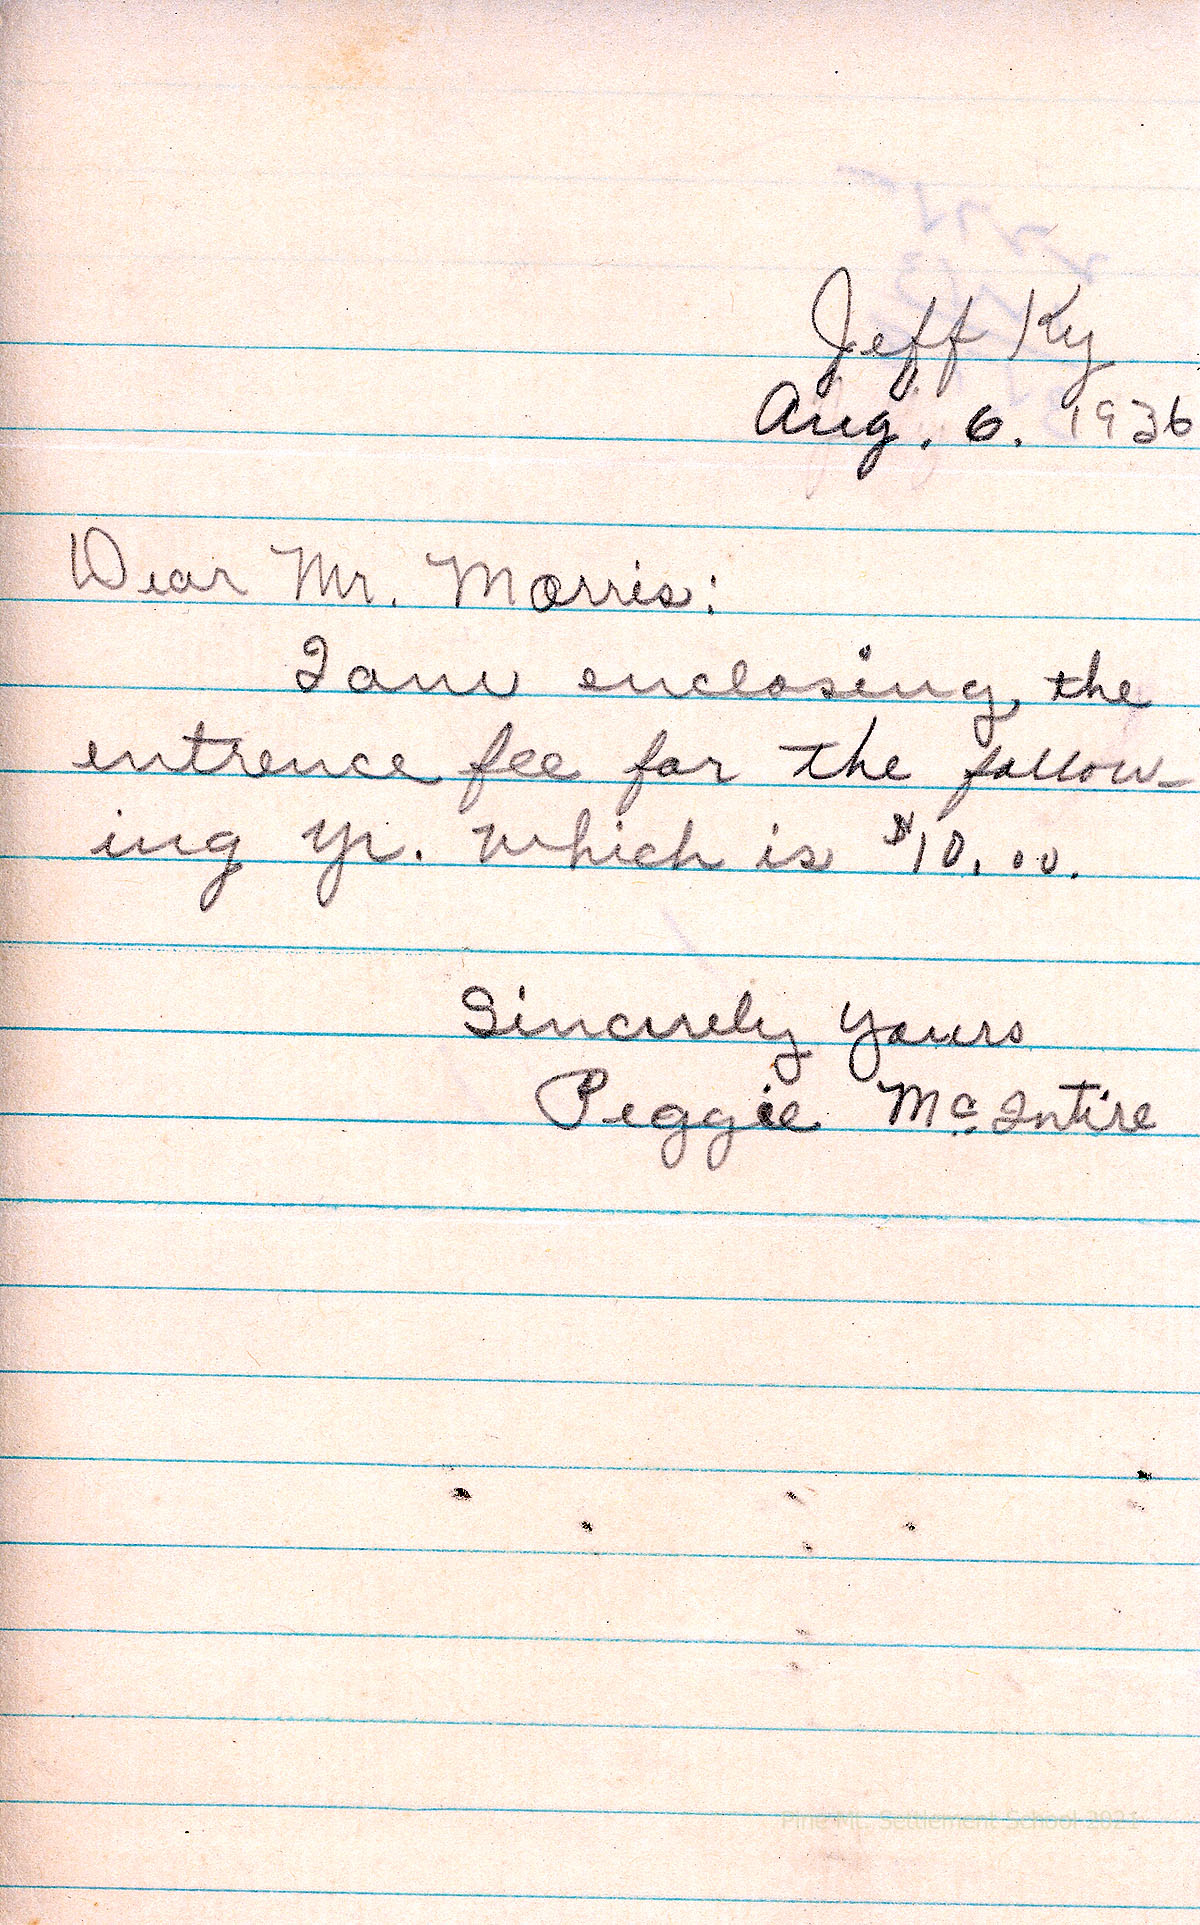 Jeff Ky
Aug. 6. 1936
Dear Mr. Morris:
I am enclosing the
entrence fee for the follow-
ing yr. which is $10.00.
Sincerely yours
Peggie McIntire
Pine Mt. Settlement School 2021